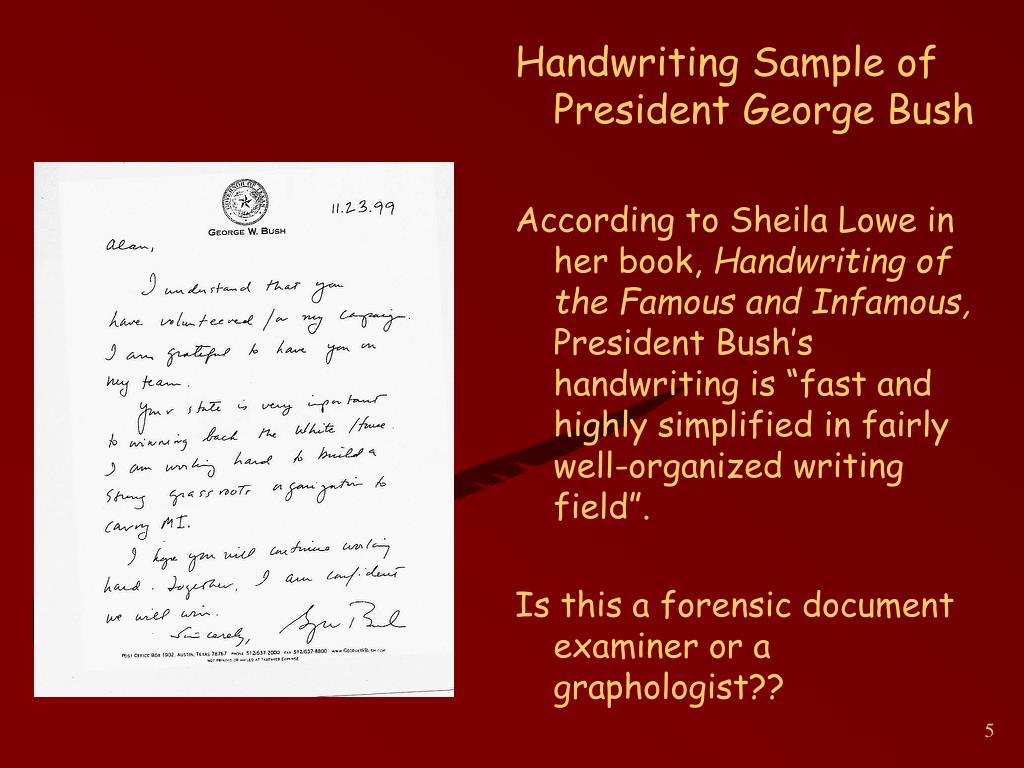 Handwriting Sample of
President George Bush
GOVERNOR OF TEXAS
GEORGE W. BUSH
11.23.99
Alan,
I understand that you
have volunteered for my campaign.
I am grateful to have you on
my team.
Your state is very important
to winning back the White House.
I am working hard to build a
strong grass roots organization to
carry MI.
I hope you will continue working
hard. Together, I am confident
we will win.
Sincerely,
George Bush
POST OFFICE BOX 1902, AUSTIN, TEXAS 78767 PHONE 512/637-2000 FAX 512/637-8800 WWW.GEORGEWBUSH.COM
NOT PRINTED OR MAILED AT TAXPAYER EXPENSE
According to Sheila Lowe in
her book, Handwriting of
the Famous and Infamous,
President Bush’s
handwriting is “fast and
highly simplified in fairly
well-organized writing
field”.
Is this a forensic document
examiner or a
graphologist??
5